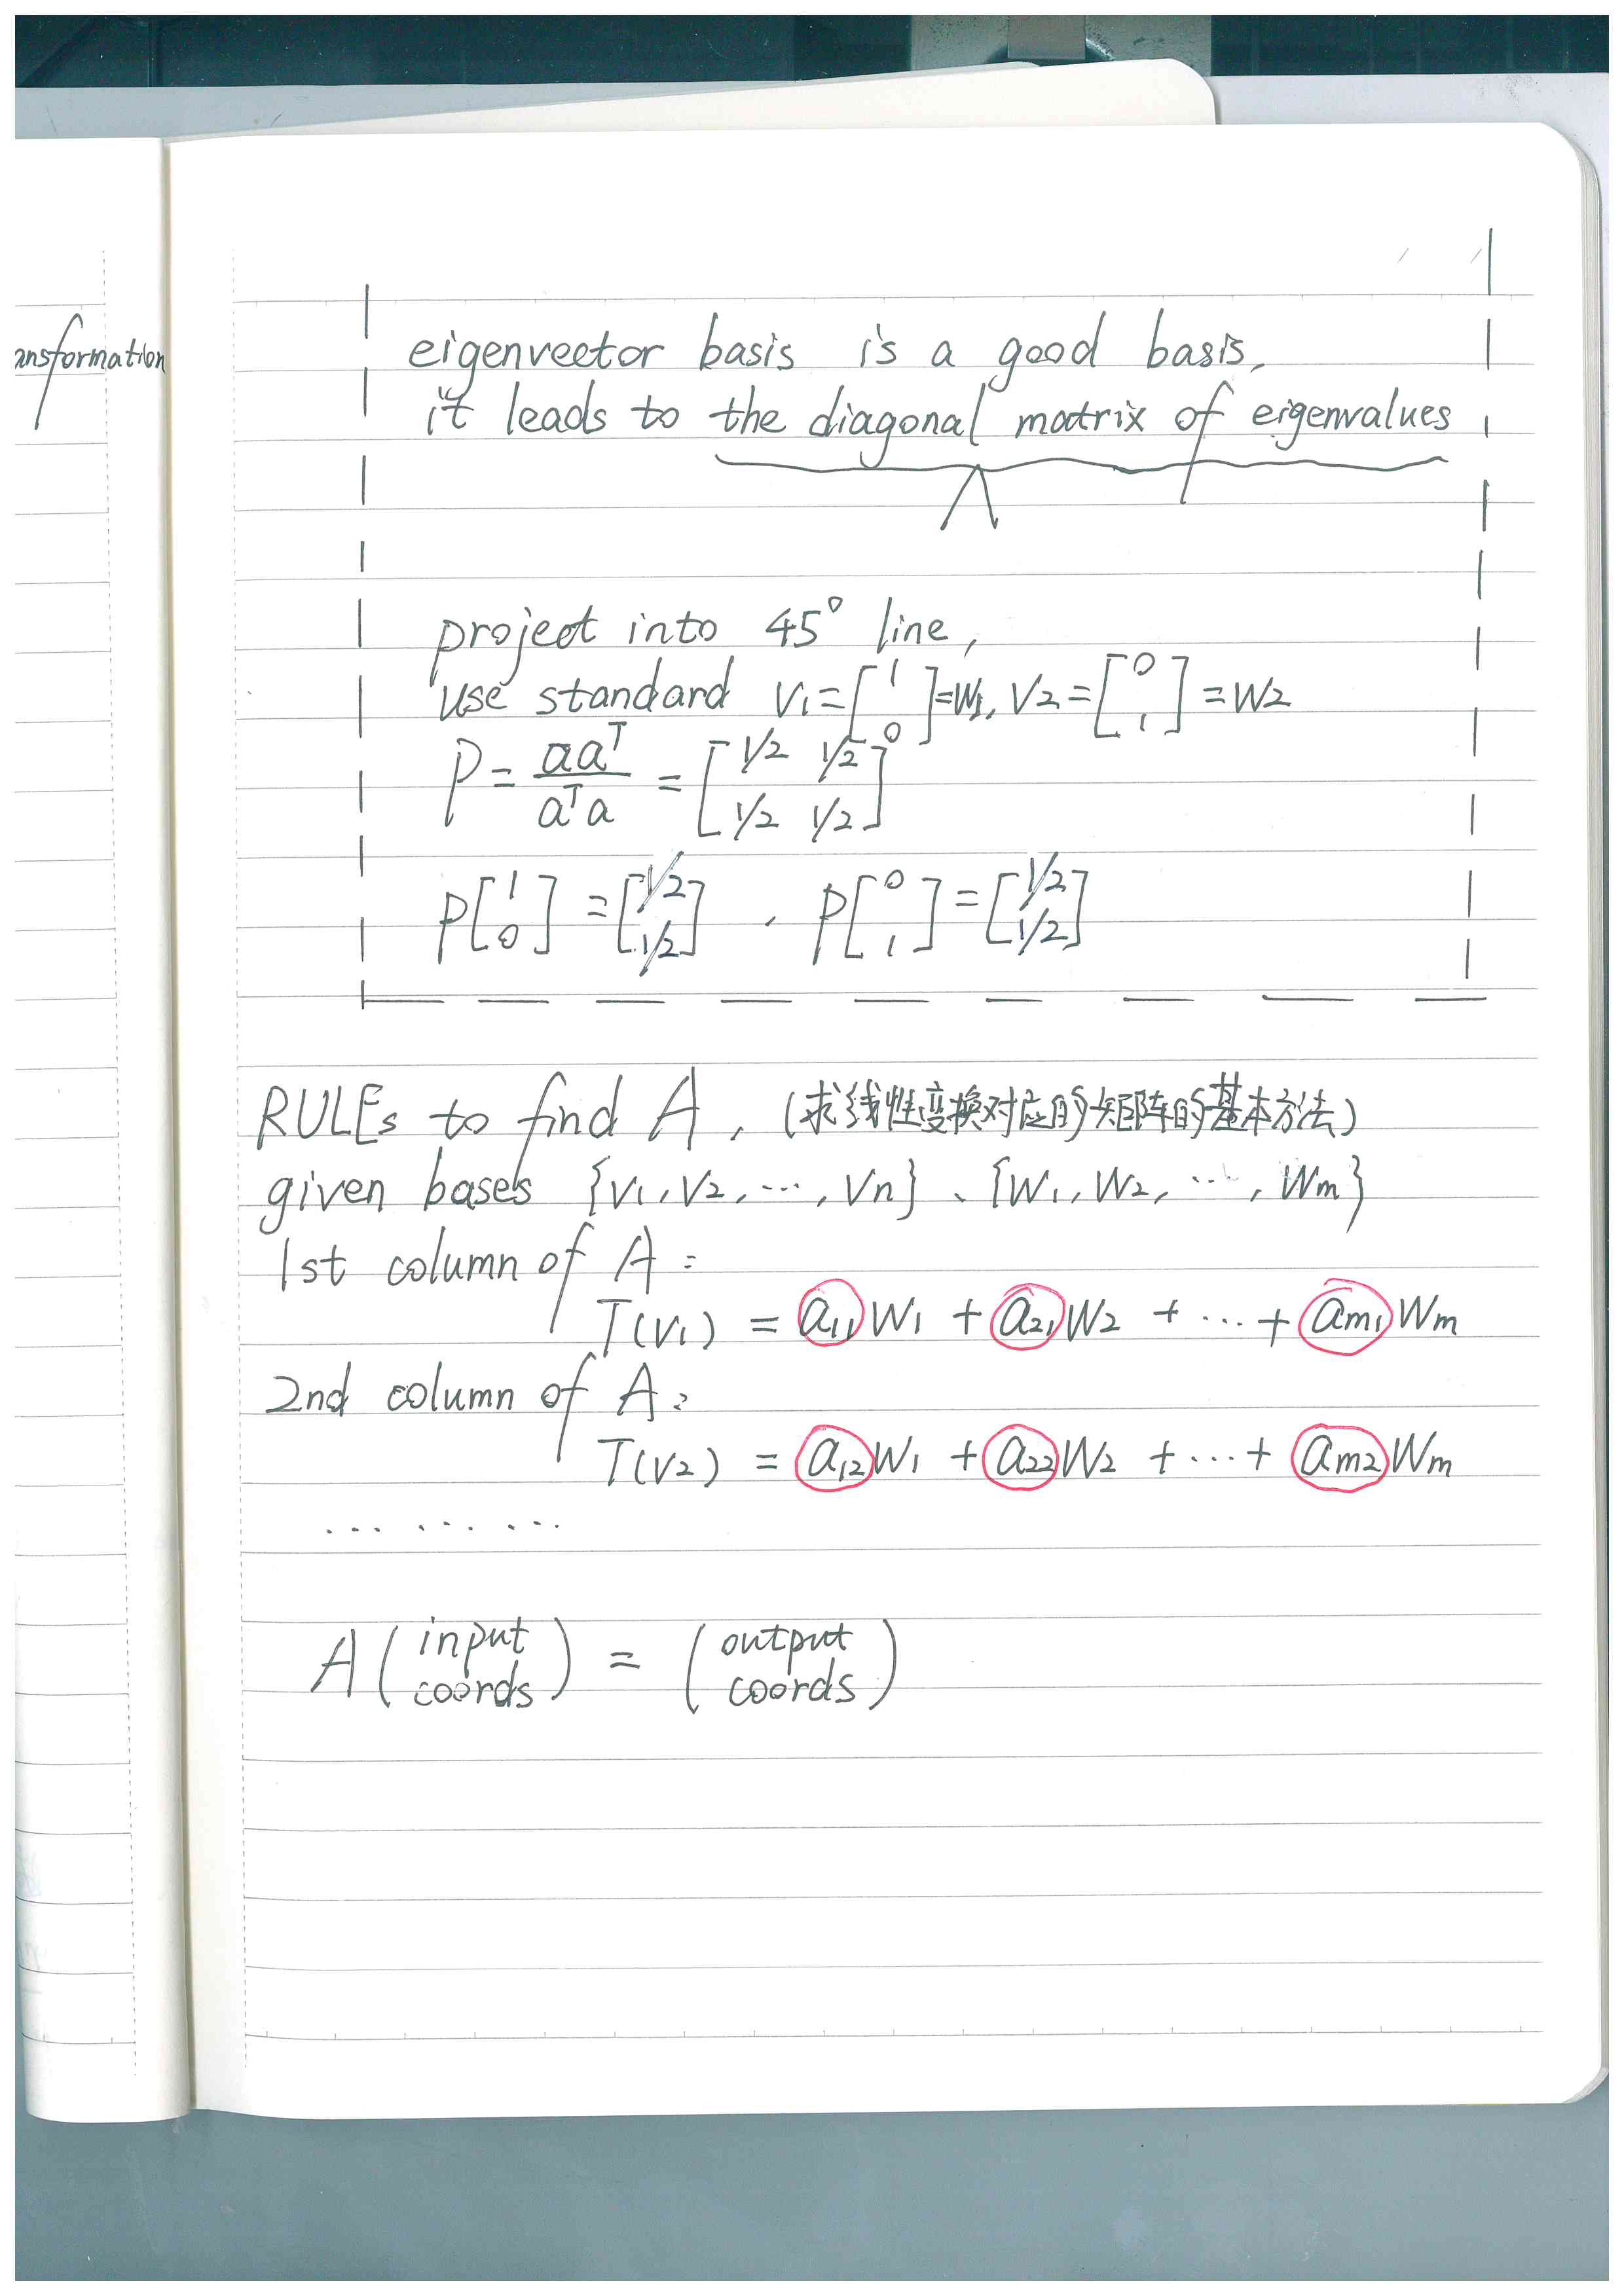 ansformation
eigenvector basis is a good basis.
it leads to the diagonal matrix of eigenvalues
Λ
project into 45° line,
use standard v₁=[1 0]=w₁, v₂=[0 1]=w₂
P = aaᵀ/aᵀa = [1/2 1/2 1/2 1/2]
P[1 0] = [1/2 1/2] , P[0 1] = [1/2 1/2]
RULEs to find A, (求线性变换对应的矩阵的基本方法)
given bases {v₁, v₂, ..., vn}、{w₁, w₂, ..., wm}
1st column of A:
T(v₁) = a₁₁w₁ + a₂₁w₂ + ... + am₁wm
2nd column of A:
T(v₂) = a₁₂w₁ + a₂₂w₂ + ... + am₂wm
... ... ...
A(input coords) = (output coords)